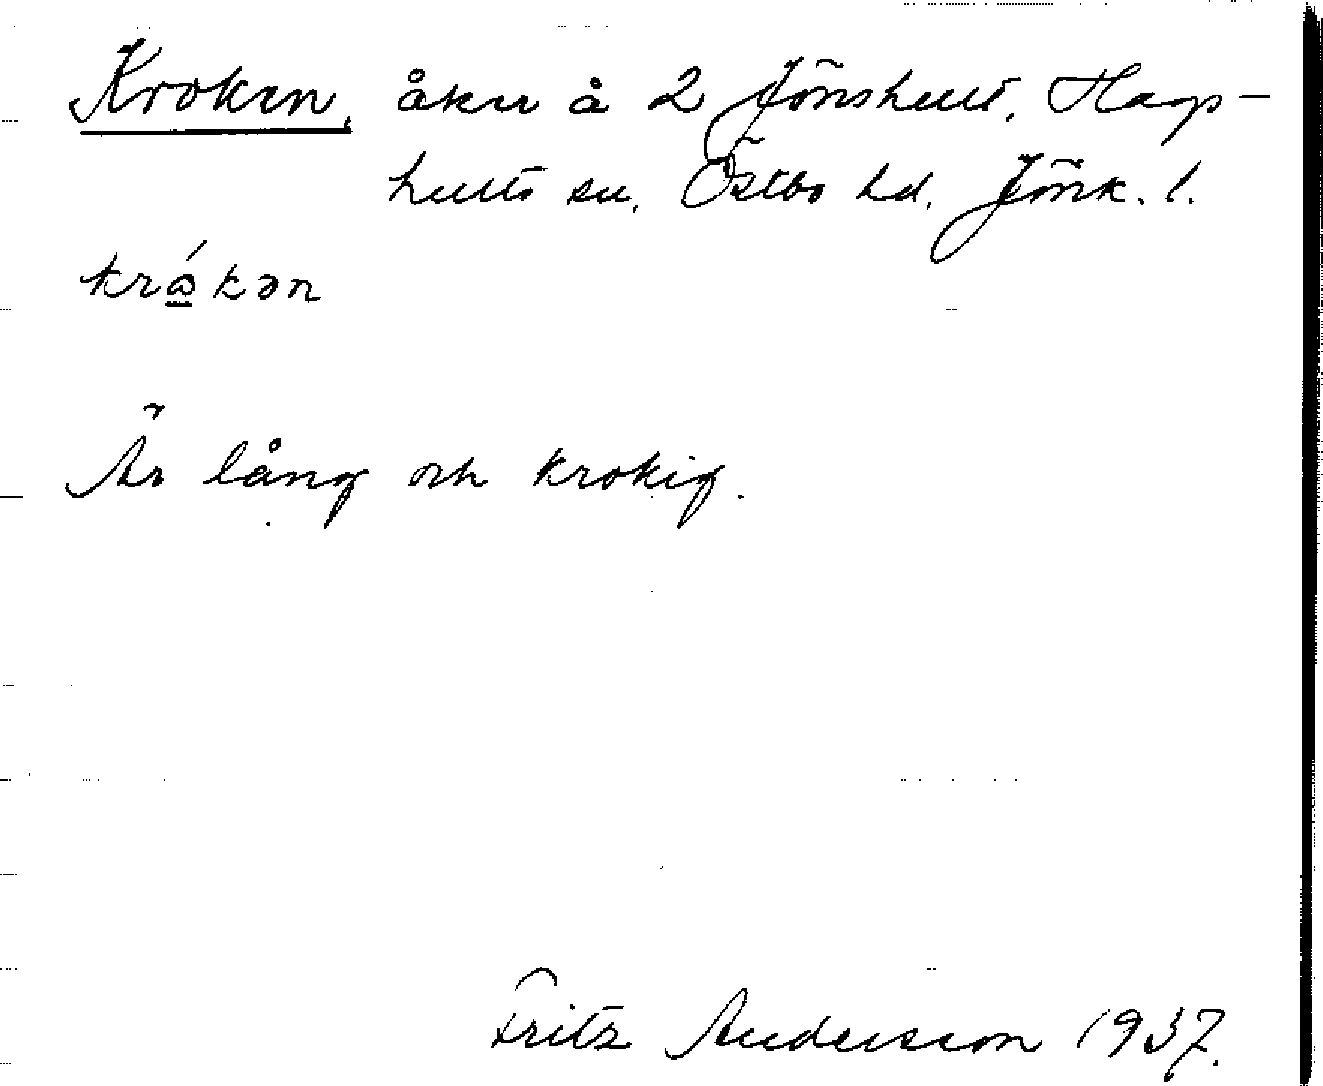 Kroken, åker å 2 Jönshult, Hags-
hults sn, Östbo hd, Jönk. l.
krókən
Är lång och krokig.
Fritz Andersson 1937.